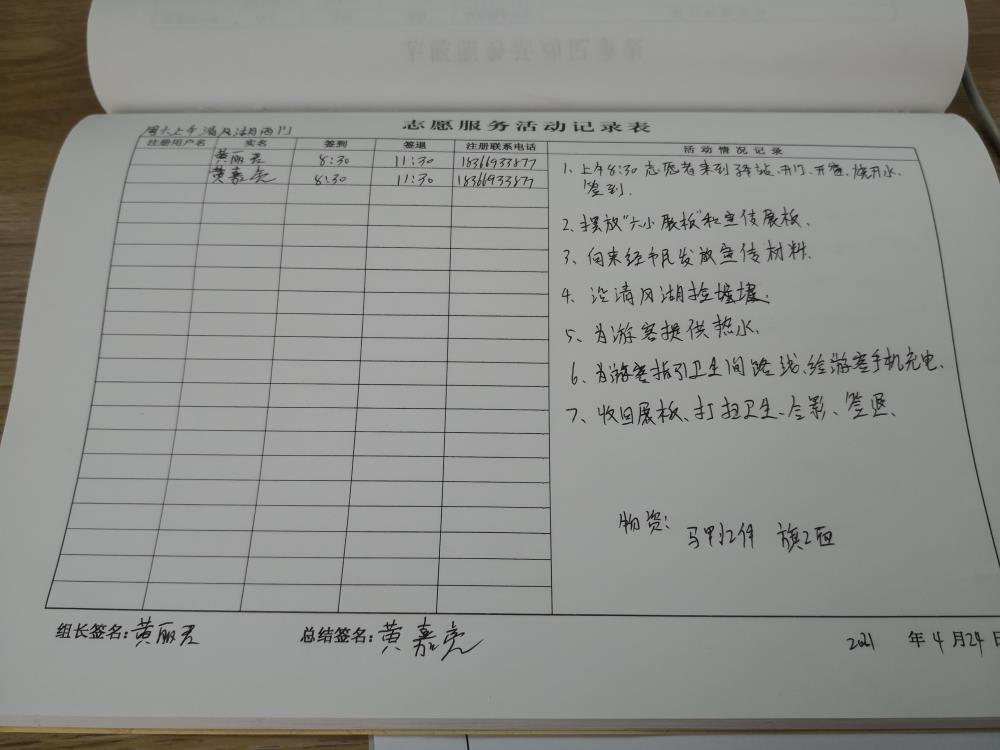 志愿服务活动记录表
周六上午清风湖西门
注册用户名 实名 签到 签退 注册联系电话 活动情况记录
黄丽君 8:30 11:30 18366933877
黄嘉亮 8:30 11:30 18366933877
1、上午8:30志愿者来到驿站、开门、开窗、烧开水、
签到.
2、摆放"大小展板"和宣传展板、
3、向来经市民发放宣传材料.
4、沿清风湖捡垃圾.
5、为游客提供热水.
6、为游客指引卫生间路线、给游客手机充电.
7、收回展板、打扫卫生、合影、签退、
物资: 马甲 件 旗2面
组长签名:黄丽君 总结签名:黄嘉亮 2021 年4月24日